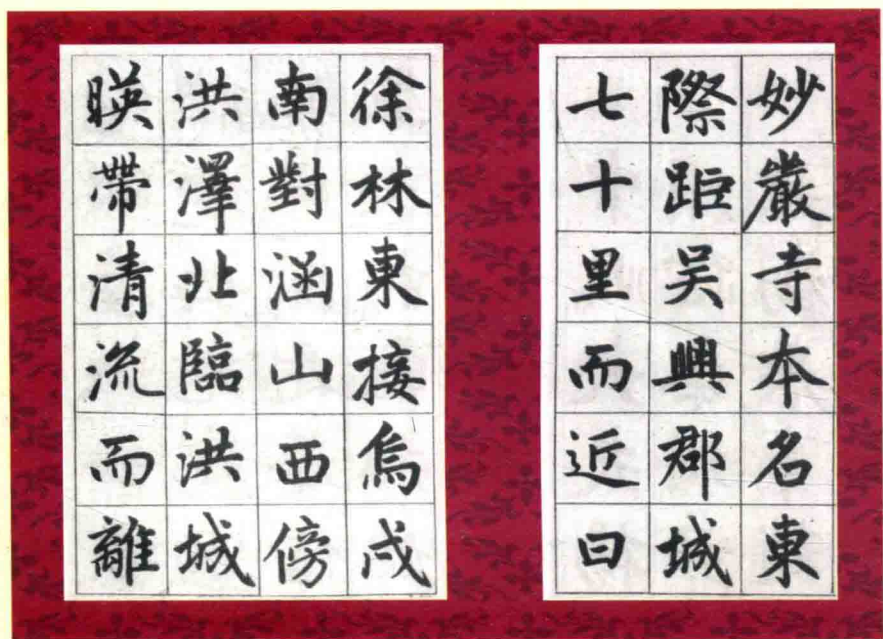 妙嚴寺本名東
際距吴興郡城
七十里而近曰
徐林東接烏戍
南對涵山西傍
洪澤北臨洪城
暎帶清流而離